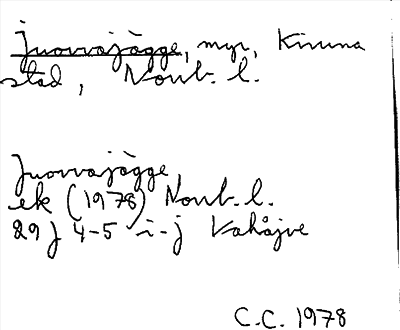 Juovvajägge, myr, Kiruna
stad, Norrb. l.
Juovvajägge,
ek (1978) Norrb. l.
29J 4-5 i-j Kahåjve
C.C. 1978